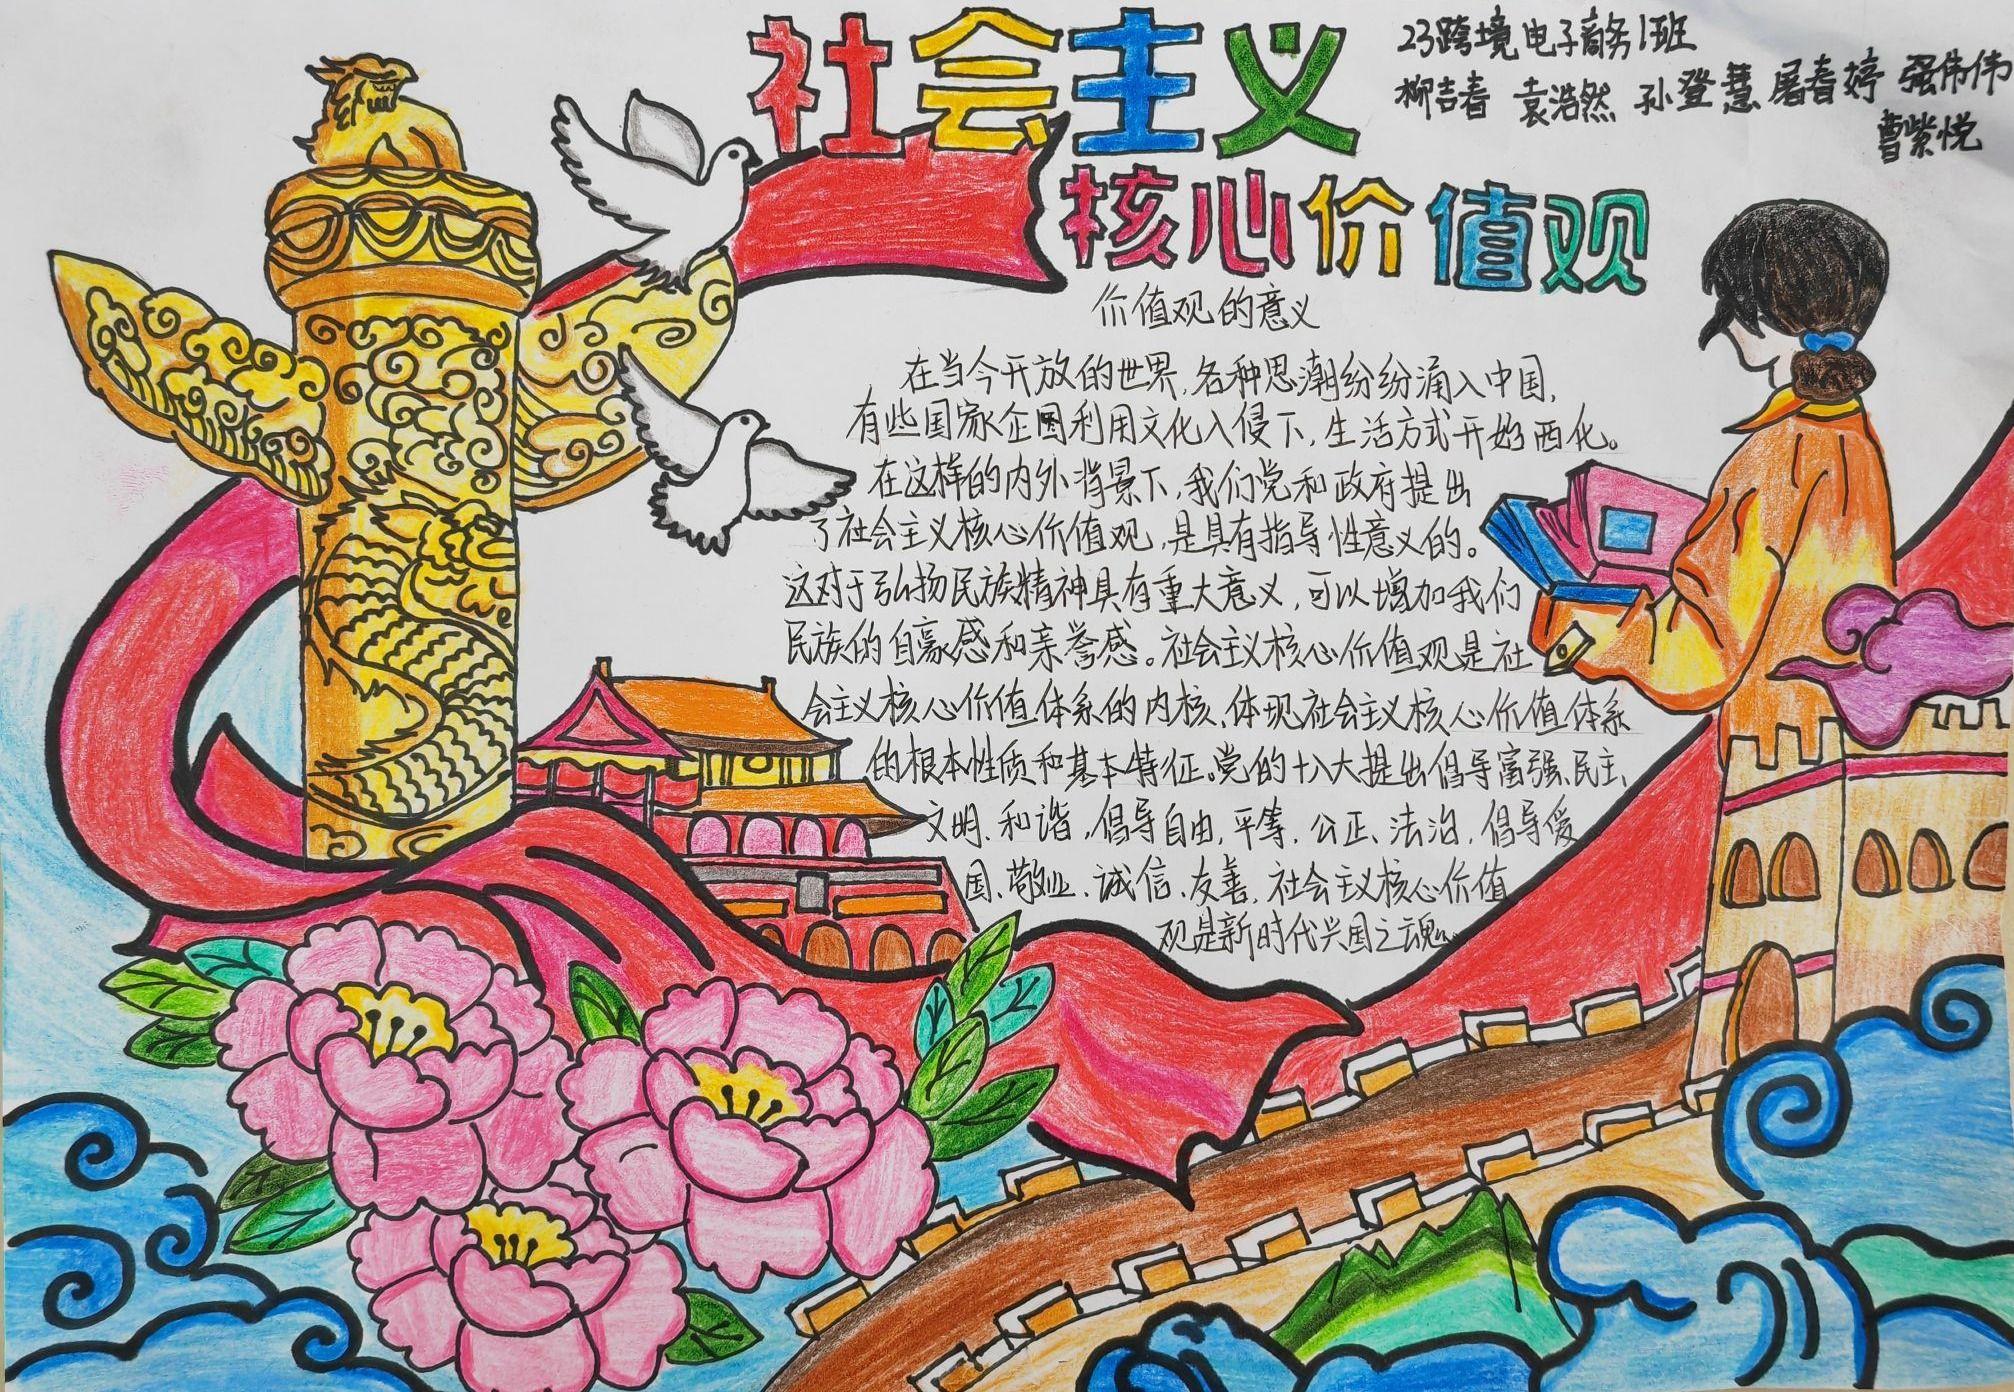 社会主义
核心价值观
23跨境电子商务1班
柳吉春 袁浩然 孙登慧 屠春婷 强伟伟
曹紫悦
价值观的意义
在当今开放的世界,各种思潮纷纷涌入中国,
有些国家企图利用文化入侵下,生活方式开始西化。
在这样的内外背景下,我们党和政府提出
了社会主义核心价值观,是具有指导性意义的。
这对于弘扬民族精神具有重大意义,可以增加我们
民族的自豪感和亲誉感。社会主义核心价值观是社
会主义核心价值体系的内核、体现社会主义核心价值体系
的根本性质和基本特征。党的十八大提出倡导富强、民主、
文明、和谐,倡导自由,平等,公正、法治,倡导爱
国、敬业、诚信、友善,社会主义核心价值
观是新时代兴国之魂。